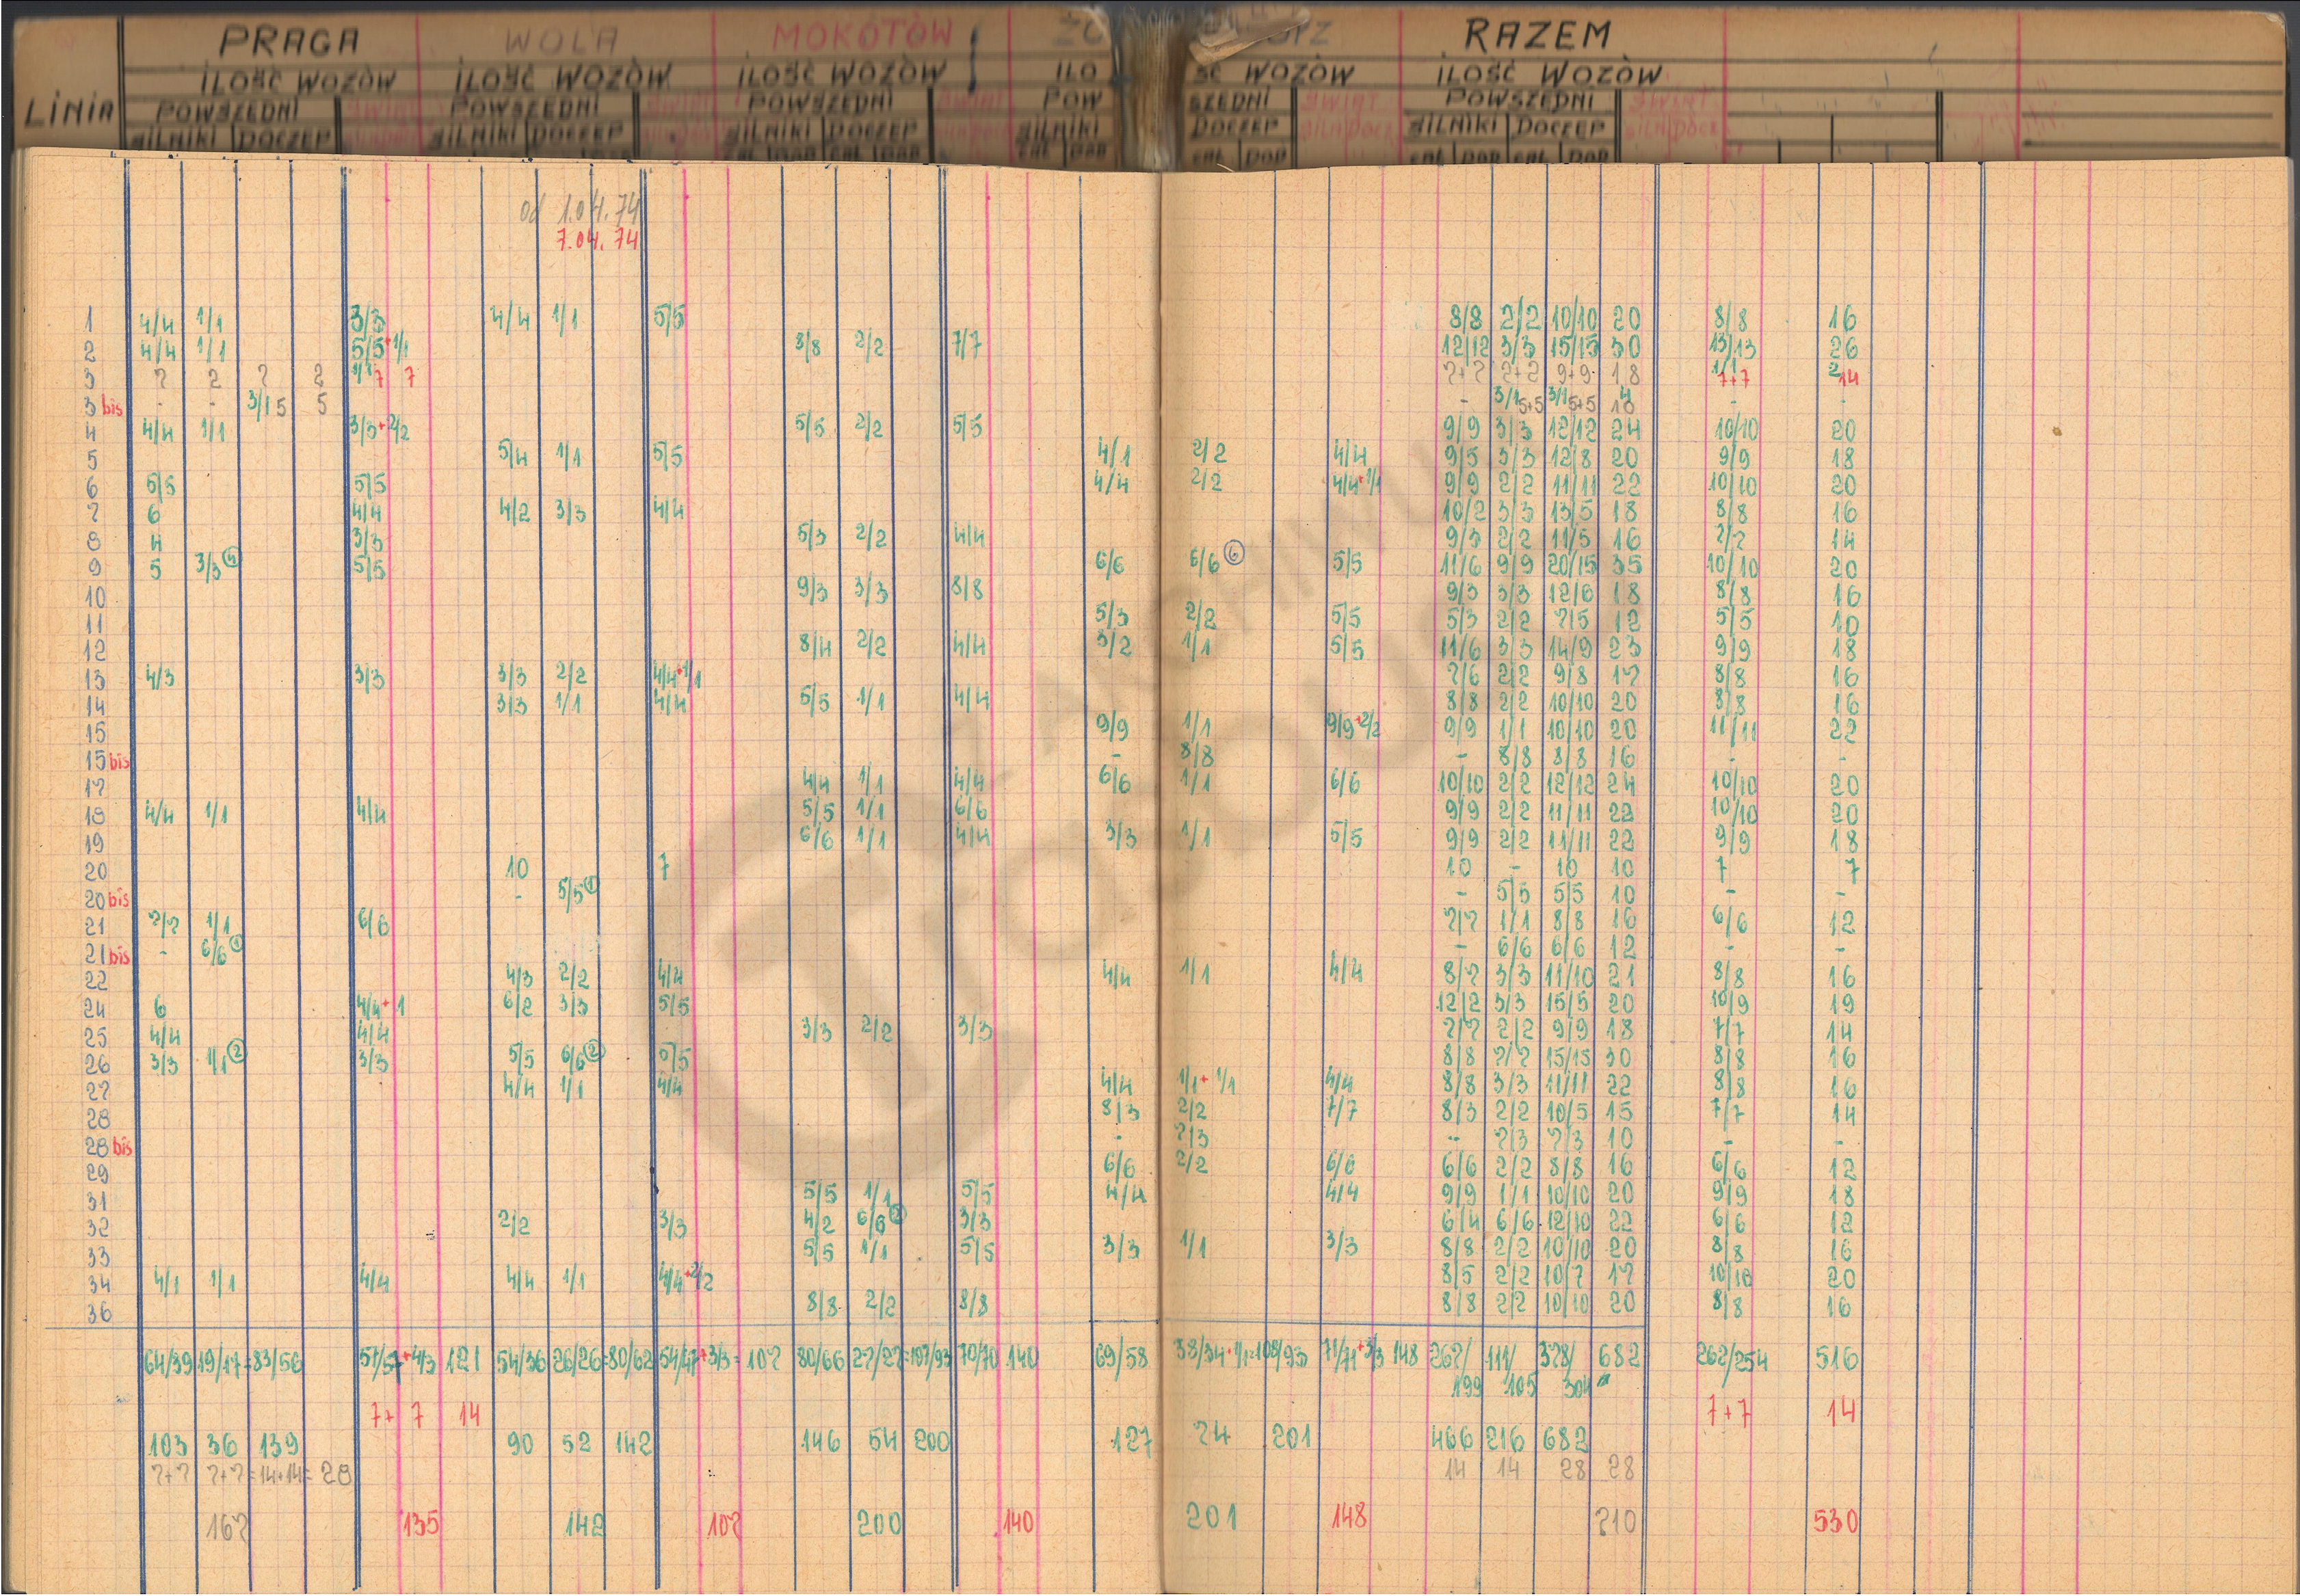 PRAGA WOLA MOKOTÓW RAZEM
ILOŚĆ WOZÓW ILOŚĆ WOZÓW ILOŚĆ WOZÓW ILOŚĆ WOZÓW ILOŚĆ WOZÓW
LINIA POWSZEDNI POWSZEDNI POWSZEDNI POWSZEDNI POWSZEDNI
SILNIKI DOCZEP SILNIKI DOCZEP SILNIKI DOCZEP SILNIKI DOCZEP SILNIKI DOCZEP
od 1.04.74
7.04.74
1 4/4 1/1 3/3 4/4 1/1 5/5 8/8 2/2 10/10 20 8/8 16
2 4/4 1/1 5/5+1/1 8/8 2/2 7/7 12/12 3/3 15/15 30 13/13 26
3 7 2 7 2 1/1 7 7 7+7 2+2 9+9 18 1/1 7+7 2 14
3 bis - - 3/1 5 5 - 3/1 5+5 3/1 5+5 4 10 - -
4 4/4 1/1 3/3+2/2 5/5 2/2 5/5 9/9 3/3 12/12 24 10/10 20
5 5/4 1/1 5/5 4/1 2/2 4/4 9/5 3/3 12/8 20 9/9 18
6 5/5 5/5 4/4 2/2 4/4+1/1 9/9 2/2 11/11 22 10/10 20
7 6 4/4 4/2 3/3 4/4 10/2 3/3 13/5 18 8/8 16
8 4 3/3 5/3 2/2 4/4 9/3 2/2 11/5 16 7/7 14
9 5 3/3 5/5 6/6 6/6 6 5/5 11/6 9/9 20/15 35 10/10 20
10 9/3 3/3 8/8 9/3 3/3 12/6 18 8/8 16
11 5/3 2/2 5/5 5/3 2/2 7/5 12 5/5 10
12 8/4 2/2 4/4 3/2 1/1 5/5 11/6 3/3 14/9 23 9/9 18
13 4/3 3/3 3/3 2/2 4/4+1/1 7/6 2/2 9/8 17 8/8 16
14 3/3 1/1 4/4 5/5 1/1 4/4 8/8 2/2 10/10 20 8/8 16
15 9/9 1/1 9/9+2/2 9/9 1/1 10/10 20 11/11 22
15 bis - 8/8 - 8/8 8/8 16 - -
17 4/4 1/1 4/4 6/6 1/1 6/6 10/10 2/2 12/12 24 10/10 20
18 4/4 1/1 4/4 5/5 1/1 6/6 9/9 2/2 11/11 22 10/10 20
19 6/6 1/1 4/4 3/3 1/1 5/5 9/9 2/2 11/11 22 9/9 18
20 10 7 10 - 10 10 7 7
20 bis - 5/5 1 - 5/5 5/5 10 - -
21 7/7 1/1 6/6 7/7 1/1 8/8 16 6/6 12
21 bis - 6/6 1 - 6/6 6/6 12 - -
22 4/3 2/2 4/4 4/4 1/1 4/4 8/7 3/3 11/10 21 8/8 16
24 6 4/4+1 6/2 3/3 5/5 12/2 3/3 15/5 20 10/9 19
25 4/4 4/4 3/3 2/2 3/3 7/7 2/2 9/9 18 7/7 14
26 3/3 1/1 2 3/3 5/5 6/6 2 5/5 8/8 7/7 15/15 30 8/8 16
27 4/4 1/1 4/4 4/4 1/1+1/1 4/4 8/8 3/3 11/11 22 8/8 16
28 8/3 2/2 7/7 8/3 2/2 10/5 15 7/7 14
28 bis - 7/3 - 7/3 7/3 10 - -
29 6/6 2/2 6/6 6/6 2/2 8/8 16 6/6 12
31 5/5 1/1 5/5 4/4 4/4 9/9 1/1 10/10 20 9/9 18
32 2/2 3/3 4/2 6/6 2 3/3 6/4 6/6 12/10 22 6/6 12
33 5/5 1/1 5/5 3/3 1/1 3/3 8/8 2/2 10/10 20 8/8 16
34 4/1 1/1 4/4 4/4 1/1 4/4+2/2 8/5 2/2 10/7 17 10/10 20
36 8/8 2/2 8/8 8/8 2/2 10/10 20 8/8 16
64/39 19/17=83/56 57/57+4/3 121 54/36 26/26=80/62 54/47+3/3= 107 80/66 27/27=107/93 70/70 140 69/58 38/34+1/1=108/93 71/71+3/3 148 267/199 111/105 378/304 682 262/254 516
7+7 14 7+7 14
103 36 139 90 52 142 146 54 200 127 74 201 466 216 682
7+7 7+7=14+14=28 14 14 28 28
167 135 142 107 200 140 201 148 710 530